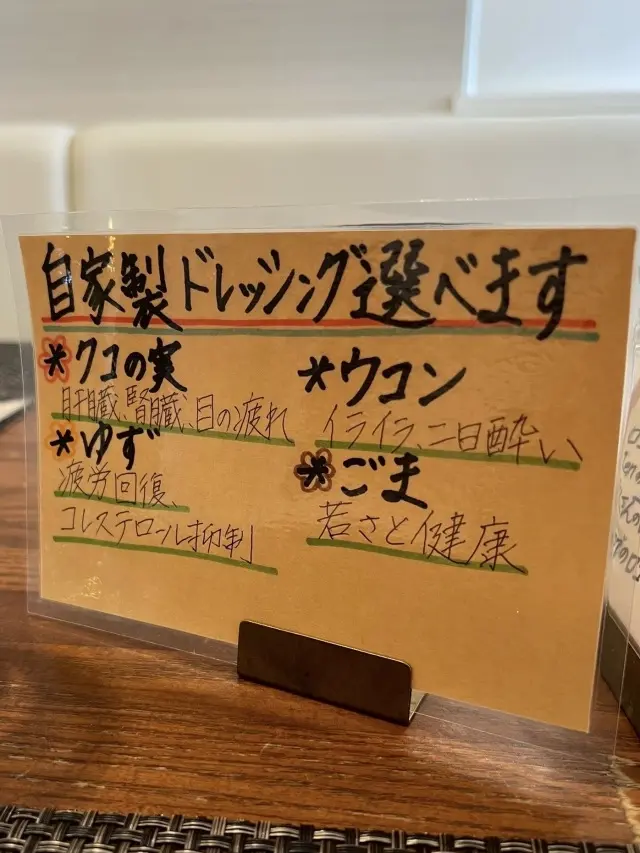 自家製ドレッシング選べます
*クコの実
肝臓、腎臓、目の疲れ
*ゆず
疲労回復、
コレステロール抑制
*ウコン
イライラ、二日酔い
*ごま
若さと健康